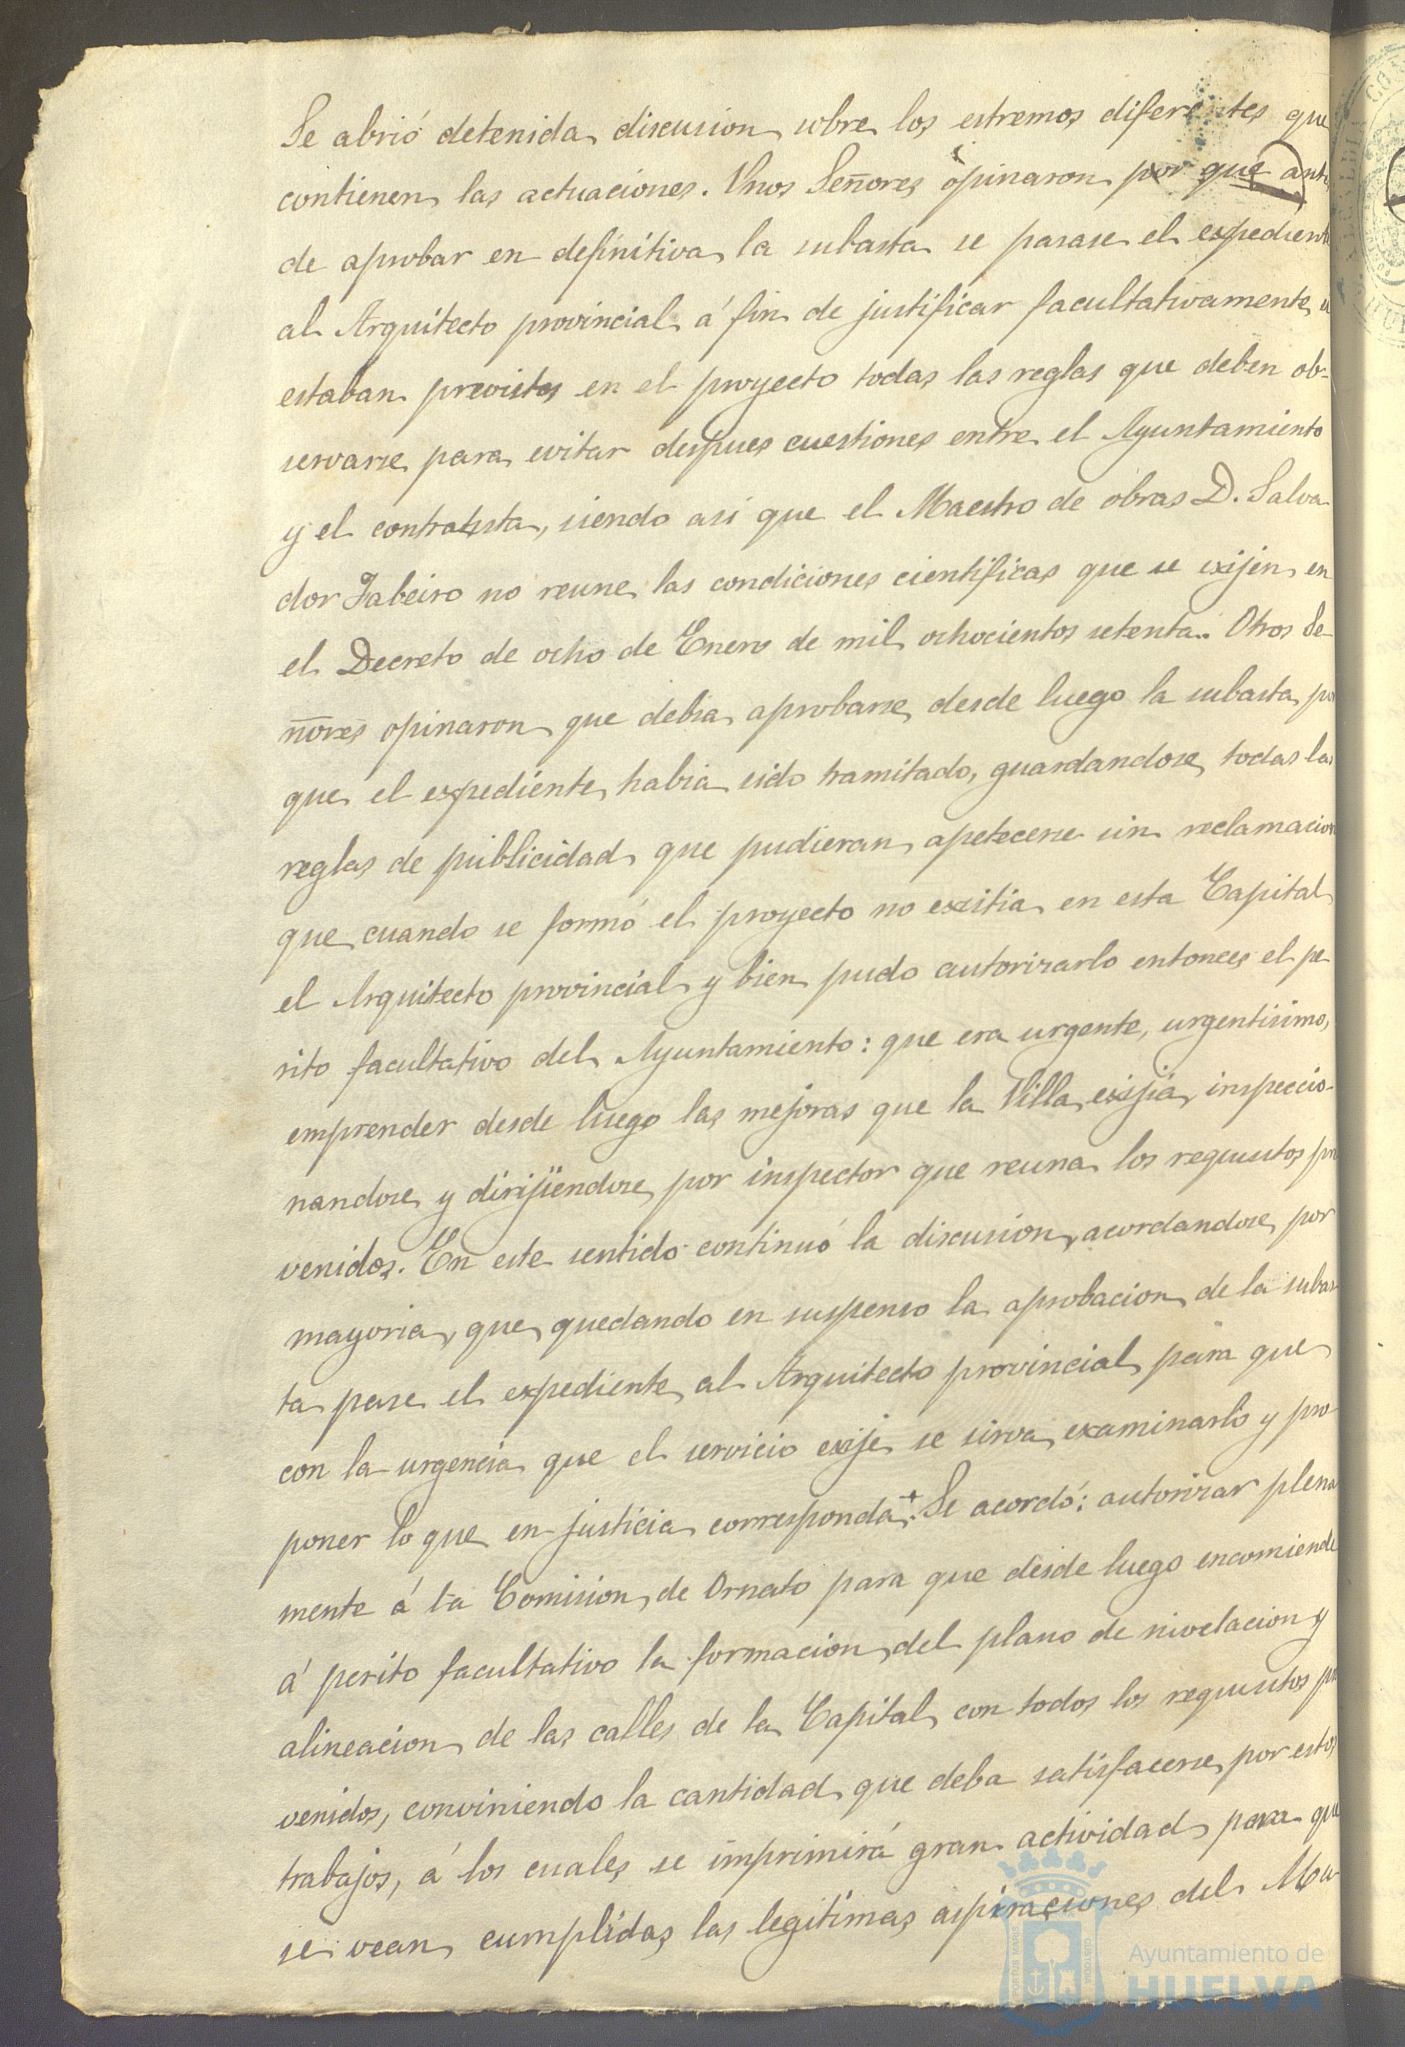 Se abrió detenida discusion sobre los estremos diferentes que
contienen las actuaciones. Unos Señores opinaron por que ant
de aprobar en definitiva la subasta se pasase el expedient
al Arquitecto provincial á fin de justificar facultativamente
estaban previstos en el proyecto todas las reglas que deben ob-
servarse para evitar despues cuestiones entre el Ayuntamiento
y el contratista, siendo asi que el Maestro de obras D. Salva
dor no reune las condiciones cientificas que se exijen en
el Decreto de ocho de Enero de mil ochocientos setenta. Otros Se-
ñores opinaron que debia aprobarse desde luego la subasta, por
que el expediente habia sido tramitado, guardandose todas las
reglas de publicidad que pudieran apetecerse sin reclamacion
que cuando se formó el proyecto no existia en esta Capital
el Arquitecto provincial y bien pudo autorizarlo entonces el pe
rito facultativo del Ayuntamiento: que era urgente, urgentisimo,
emprender desde luego las mejoras que la Villa exijia, inspeccio-
nandose y dirijiendose por inspector que reuna los requisitos pre
venidos. En este sentido continuó la discusion, acordandose por
mayoria, que quedando en suspenso la aprobacion de la subas
ta pase el expediente al Arquitecto provincial para que
con la urgencia que el servicio exije se sirva examinarlo y pro
poner lo que en justicia corresponda.+ Se acordó: autorizar plena
mente á la Comision de Ornato para que desde luego encomiende
á perito facultativo la formacion del plano de nivelacion y
alineacion de las calles de la Capital con todos los requisitos pre
venidos, conviniendo la cantidad que deba satisfacerse por estos
trabajos, á los cuales se imprimirá gran actividad para que
se vean cumplidas las legitimas aspiraciones del Mu
Ayuntamiento de
HUELVA